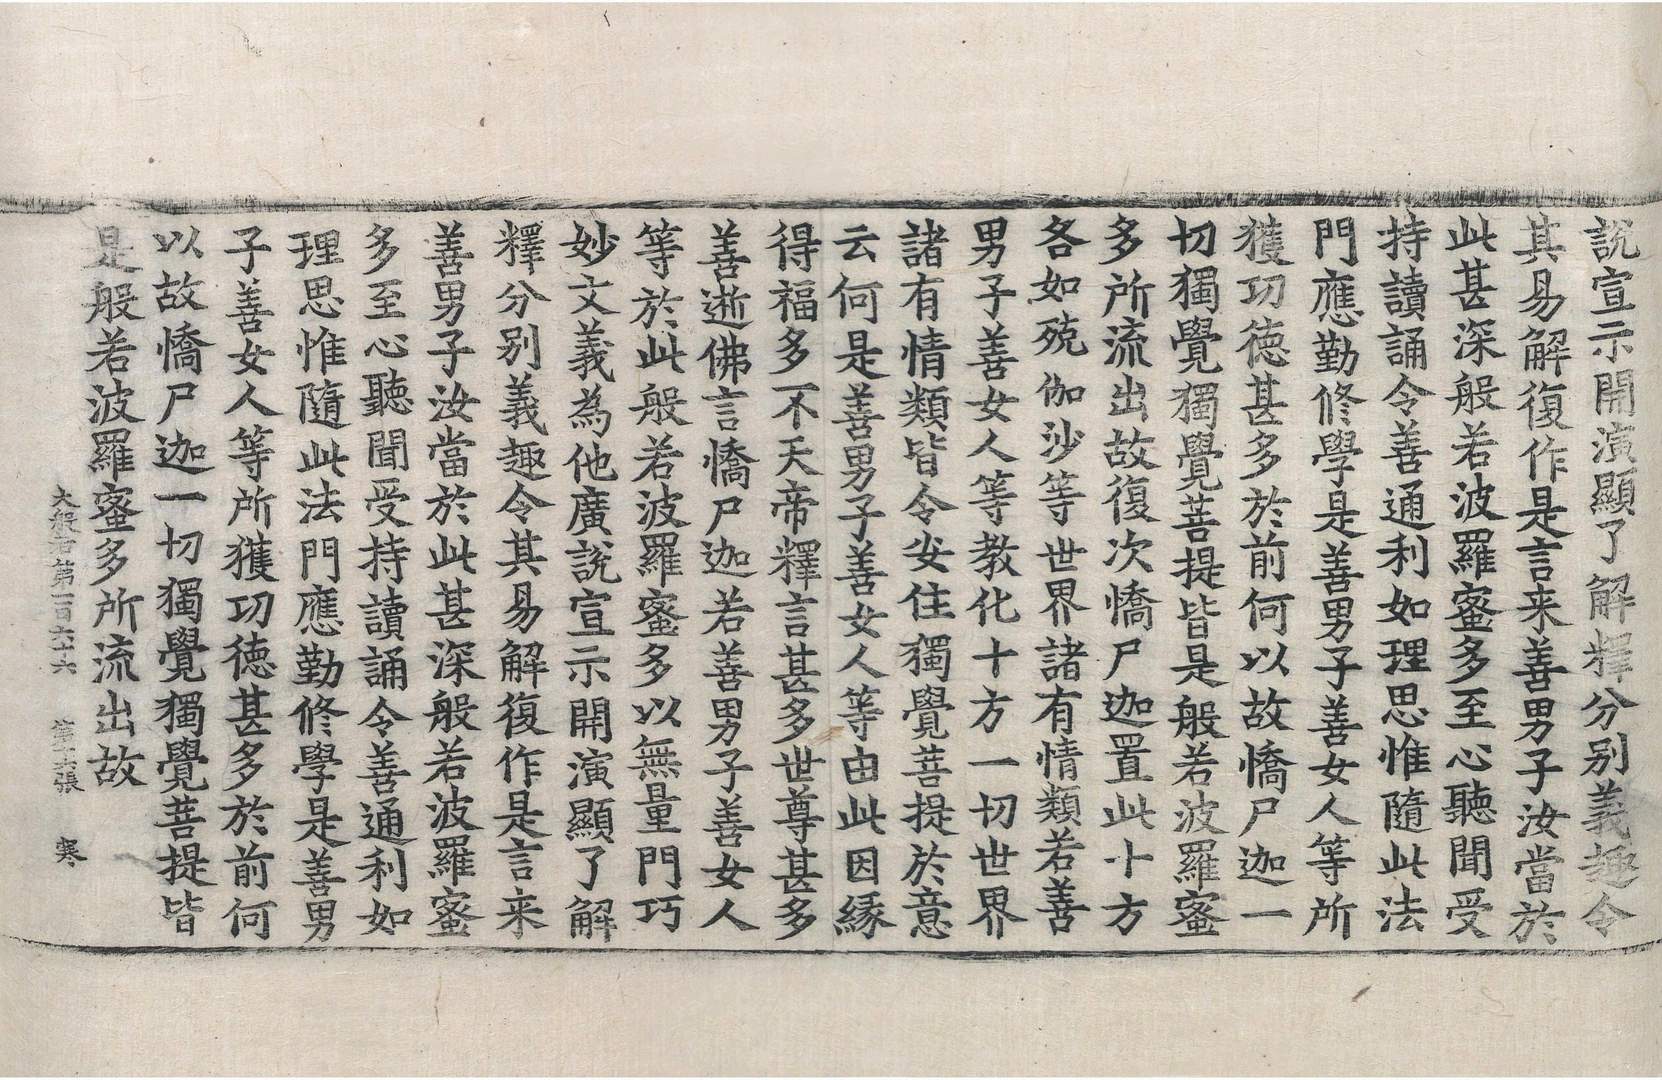 說宣示開演顯了解釋分別義趣令
其易解復作是言来善男子汝當於
此甚深般若波羅蜜多至心聽聞受
持讀誦令善通利如理思惟隨此法
門應勤修學是善男子善女人等所
獲功德甚多於前何以故憍尸迦一
切獨覺獨覺菩提皆是般若波羅蜜
多所流出故復次憍尸迦置此十方
各如殑伽沙等世界諸有情類若善
男子善女人等教化十方一切世界
諸有情類皆令安住獨覺菩提於意
云何是善男子善女人等由此因緣
得福多不天帝釋言甚多世尊甚多
善逝佛言憍尸迦若善男子善女人
等於此般若波羅蜜多以無量門巧
妙文義為他廣說宣示開演顯了解
釋分別義趣令其易解復作是言来
善男子汝當於此甚深般若波羅蜜
多至心聽聞受持讀誦令善通利如
理思惟隨此法門應勤修學是善男
子善女人等所獲功德甚多於前何
以故憍尸迦一切獨覺獨覺菩提皆
是般若波羅蜜多所流出故
大般若第一百六十六 第十六張 寒